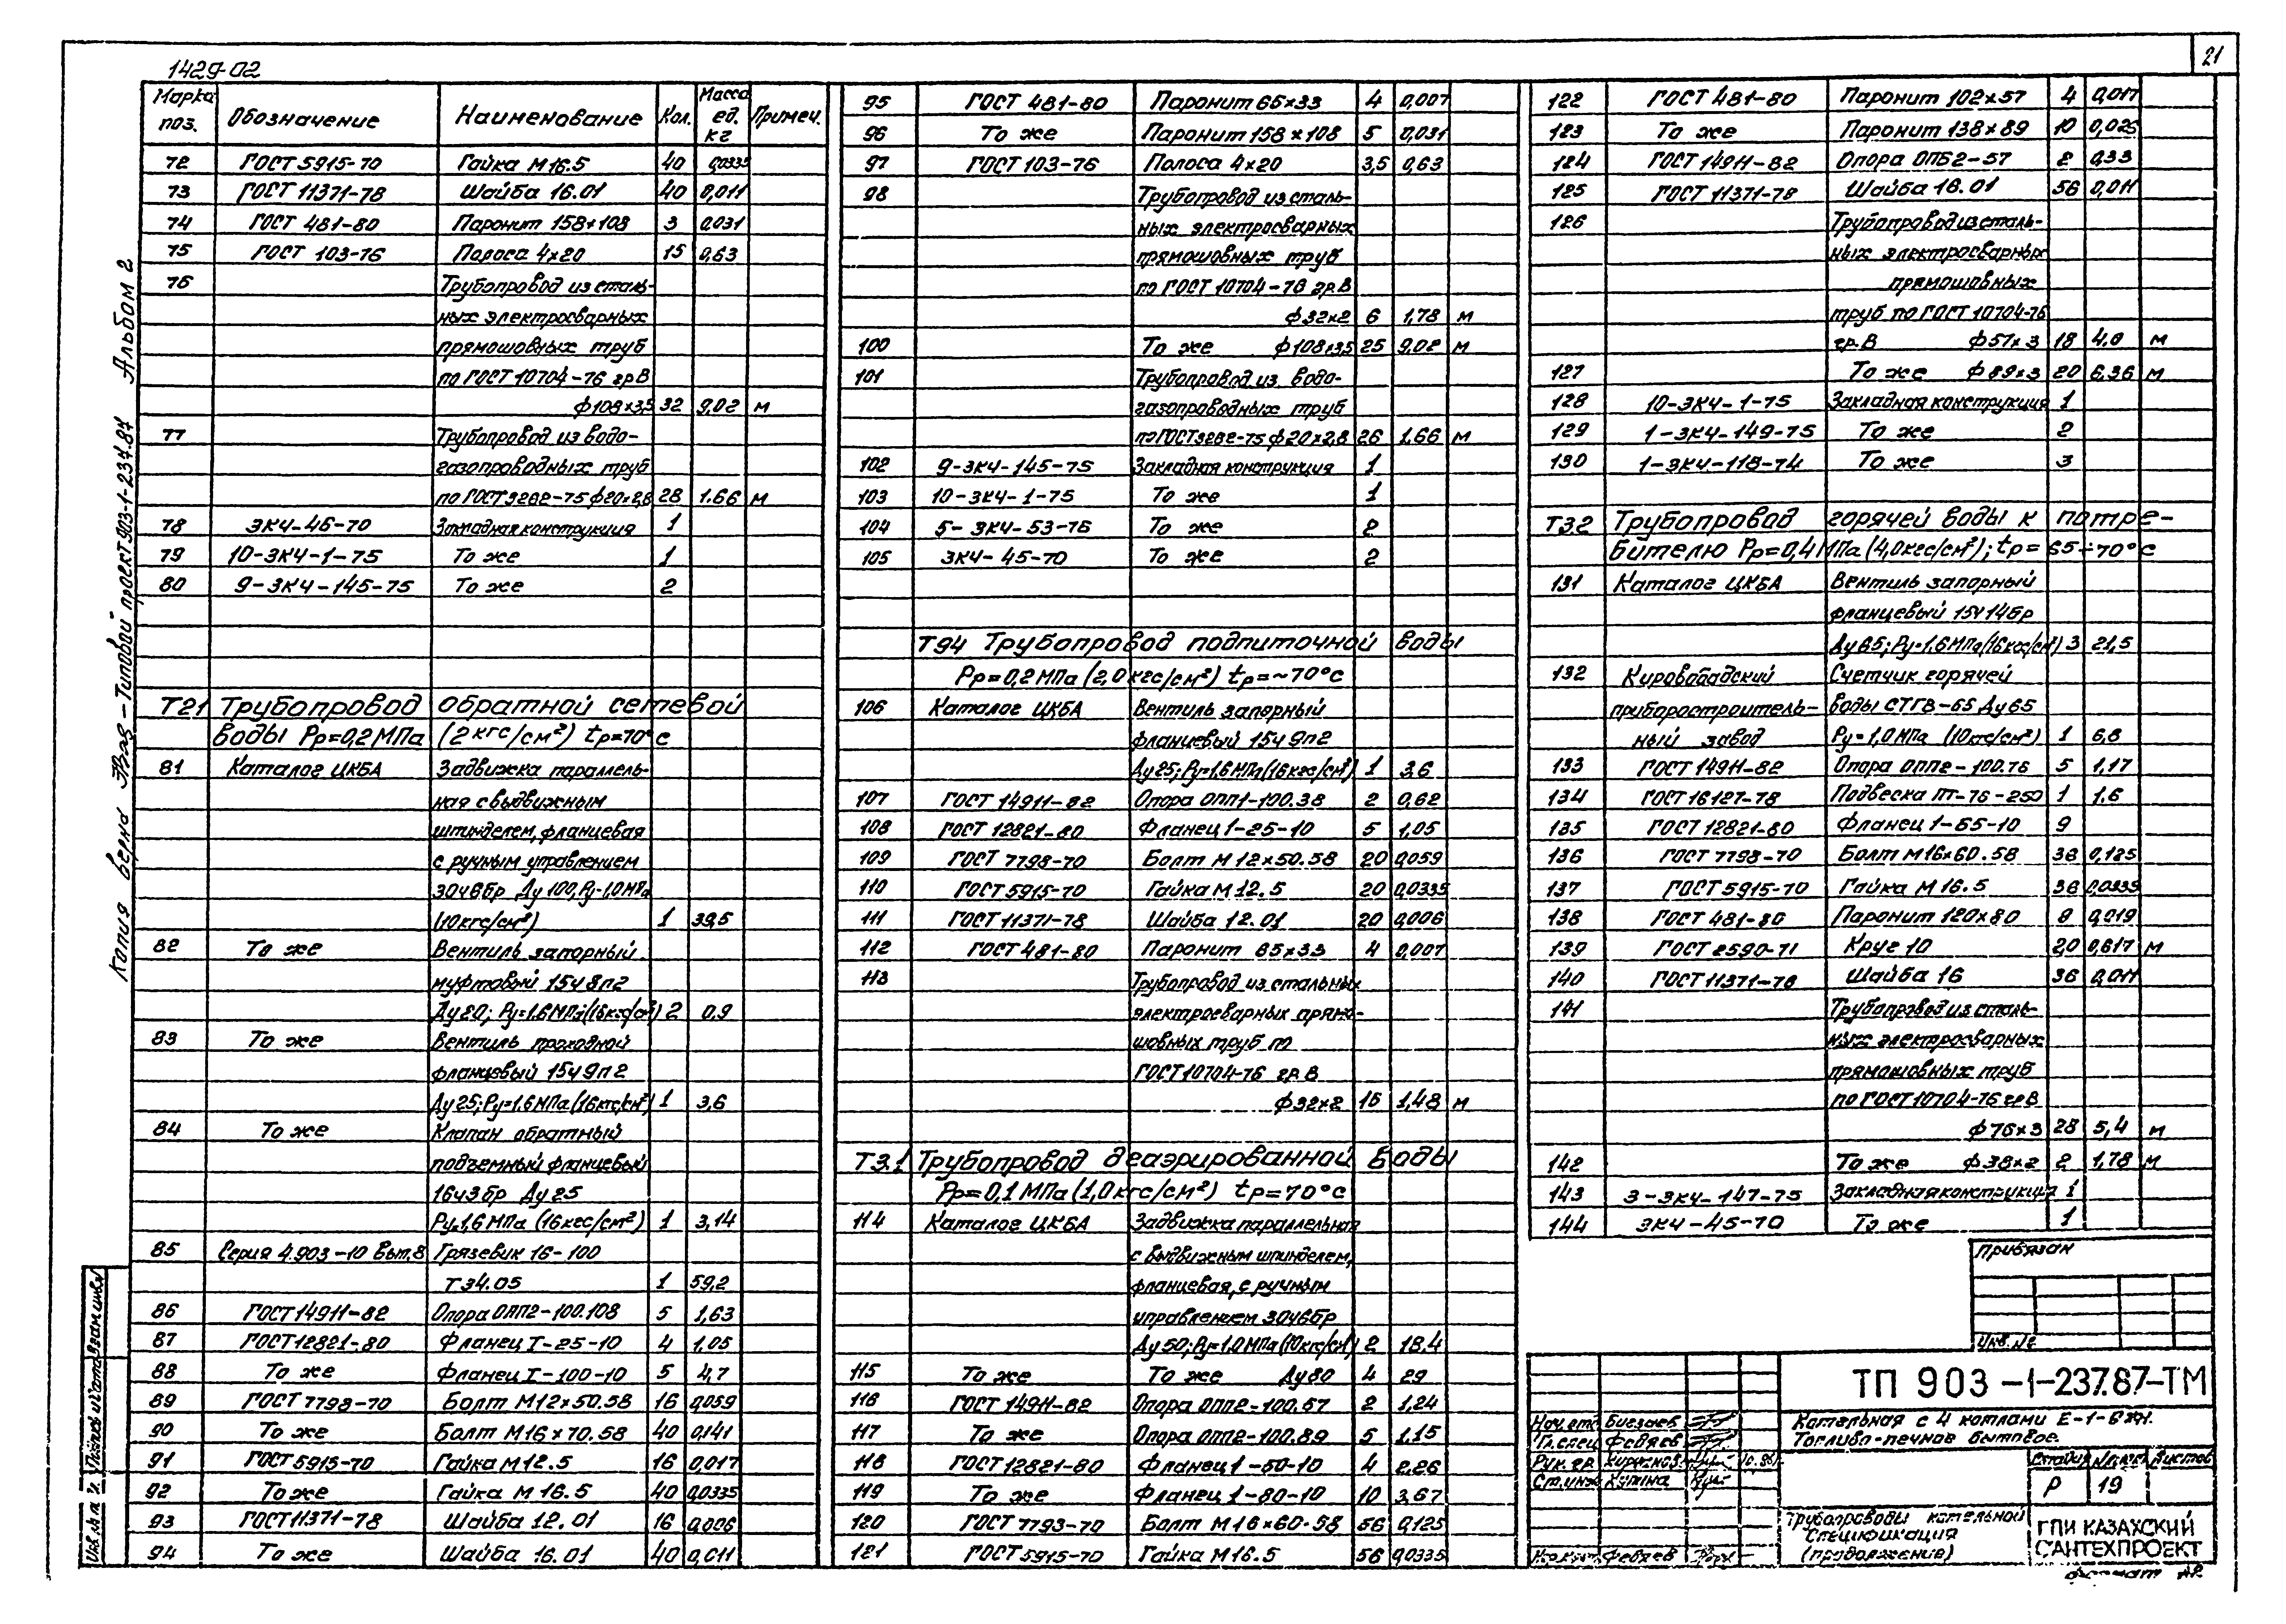 21
1429-02
Марка поз. Обозначение Наименование Кол. Масса ед. кг Примеч.
72 ГОСТ 5915-70 Гайка М16.5 40 0,0335
73 ГОСТ 11371-78 Шайба 16.01 40 0,011
74 ГОСТ 481-80 Паронит 158×108 3 0,031
75 ГОСТ 103-76 Полоса 4×20 15 0,63
76 Трубопровод из сталь-
ных электросварных
прямошовных труб
по ГОСТ 10704-76 гр.В
ф108×3,5 32 9,02 м
77 Трубопровод из водо-
газопроводных труб
по ГОСТ 3262-75 ф20×2,8 28 1.66 м
78 ЗК4-46-70 Закладная конструкция 1
79 10-ЗК4-1-75 То же 1
80 9-ЗК4-145-75 То же 2
Т21 Трубопровод обратной сетевой
воды Рр=0,2МПа (2кгс/см²) tр=70°с
81 Каталог ЦКБА Задвижка параллель-
ная с выдвижным
шпинделем, фланцевая
с ручным управлением
30ч6бр Ду 100, Ру-1,0МПа
(10кгс/см²) 1 39,5
82 То же Вентиль запорный
муфтовый 15ч8п2
Ду20; Ру=1,6МПа (16кгс/см²) 2 0,9
83 То же Вентиль проходной
фланцевый 15ч9п2
Ду25; Ру=1,6МПа (16кгс/см²) 1 3,6
84 То же Клапан обратный
подъемный фланцевый
16ч3бр Ду 25
Ру=1,6МПа (16кгс/см²) 1 3,14
85 Серия 4.903-10 Вып.8 Грязевик 16-100
Т34.05 1 59,2
86 ГОСТ 14911-82 Опора ОПП2-100.108 5 1,63
87 ГОСТ 12821-80 Фланец I-25-10 4 1,05
88 То же Фланец I-100-10 5 4,7
89 ГОСТ 7798-70 Болт М12×50.58 16 0,059
90 То же Болт М16×70.58 40 0,141
91 ГОСТ 5915-70 Гайка М12.5 16 0,017
92 То же Гайка М16.5 40 0,0335
93 ГОСТ 11371-78 Шайба 12.01 16 0,006
94 То же Шайба 16.01 40 0,011
95 ГОСТ 481-80 Паронит 65×33 4 0,007
96 То же Паронит 158×108 5 0,031
97 ГОСТ 103-76 Полоса 4×20 3,5 0,63
98 Трубопровод из сталь-
ных электросварных
прямошовных труб
по ГОСТ 10704-76 гр.В
ф32×2 6 1,78 м
100 То же ф108×3,5 25 9,02 м
101 Трубопровод из водо-
газопроводных труб
по ГОСТ 3262-75 ф20×2,8 26 1.66 м
102 9-ЗК4-145-75 Закладная конструкция 1
103 10-ЗК4-1-75 То же 1
104 5-ЗК4-53-76 То же 2
105 ЗК4-45-70 То же 2
Т94 Трубопровод подпиточной воды
Рр=0,2МПа (2,0кгс/см²) tр=~70°с
106 Каталог ЦКБА Вентиль запорный
фланцевый 15ч9п2
Ду25; Ру=1,6МПа (16кгс/см²) 1 3,6
107 ГОСТ 14911-82 Опора ОПП1-100.38 2 0,62
108 ГОСТ 12821-80 Фланец 1-25-10 5 1,05
109 ГОСТ 7798-70 Болт М12×50.58 20 0,059
110 ГОСТ 5915-70 Гайка М12.5 20 0,0335
111 ГОСТ 11371-78 Шайба 12.01 20 0,006
112 ГОСТ 481-80 Паронит 65×33 4 0,007
113 Трубопровод из стальных
электросварных прямо-
шовных труб по
ГОСТ 10704-76 гр.В
ф32×2 15 1,48 м
Т3.1 Трубопровод деаэрированной воды
Рр=0,1МПа (1,0кгс/см²) tр=70°с
114 Каталог ЦКБА Задвижка параллельная
с выдвижным шпинделем,
фланцевая, с ручным
управлением 30ч6бр
Ду50; Ру=1,0МПа (10кгс/см²) 2 18,4
115 То же То же Ду80 4 29
116 ГОСТ 14911-82 Опора ОПП2-100.57 2 1,24
117 То же Опора ОПП2-100.89 5 1,15
118 ГОСТ 12821-80 Фланец 1-50-10 4 2,26
119 То же Фланец 1-80-10 10 3,67
120 ГОСТ 7793-70 Болт М16×60.58 56 0,125
121 ГОСТ 5915-70 Гайка М16.5 56 0,0335
122 ГОСТ 481-80 Паронит 102×57 4 0,017
123 То же Паронит 138×89 10 0,025
124 ГОСТ 14911-82 Опора ОПБ2-57 2 0,33
125 ГОСТ 11371-78 Шайба 16.01 56 0,011
126 Трубопровод из сталь-
ных электросварных
прямошовных
труб по ГОСТ 10704-76
гр.В ф57×3 18 4,0 м
127 То же ф89×3 20 6,36 м
128 10-ЗК4-1-75 Закладная конструкция 1
129 1-ЗК4-149-75 То же 2
130 1-ЗК4-118-74 То же 3
Т32 Трубопровод горячей воды к потре-
бителю Рр=0,4МПа (4,0кгс/см²); tр=65÷70°с
131 Каталог ЦКБА Вентиль запорный
фланцевый 15ч14бр
Ду65; Ру=1,6МПа (16кгс/см²) 3 21,5
132 Кировобадский Счетчик горячей
приборостроитель- воды СТГВ-65 Ду65
ный завод Ру=1,0МПа (10кгс/см²) 1 6,8
133 ГОСТ 14911-82 Опора ОПП2-100.76 5 1,17
134 ГОСТ 16127-78 Подвеска ПГ-76-250 1 1,6
135 ГОСТ 12821-80 Фланец 1-65-10 9
136 ГОСТ 7798-70 Болт М16×60.58 36 0,125
137 ГОСТ 5915-70 Гайка М16.5 36 0,0335
138 ГОСТ 481-80 Паронит 120×80 9 0,019
139 ГОСТ 2590-71 Круг 10 2,0 0,617 м
140 ГОСТ 11371-78 Шайба 16 36 0,011
141 Трубопровод из сталь-
ных электросварных
прямошовных труб
по ГОСТ 10704-76 гр.В
ф76×3 28 5,4 м
142 То же ф38×2 2 1,78 м
143 3-ЗК4-147-75 Закладная конструкция 1
144 ЗК4-45-70 То же 1
Привязан
Инв.№
ТП 903-1-237.87-ТМ
Котельная с 4 котлами Е-1-9жн.
Топливо-печное бытовое.
Стадия Лист Листов
Р 19
Трубопроводы котельной
Спецификация
(продолжение)
ГПИ КАЗАХСКИЙ
САНТЕХПРОЕКТ
Нач.отд.
Гл.спец. Февяев
Рук.гр.
Ст.инж. Купина
Февяев
Формат А2
Копия верна Типовой проект 903-1-237.87 Альбом 2
Взам.инв.№
Подпись и дата
Инв.№